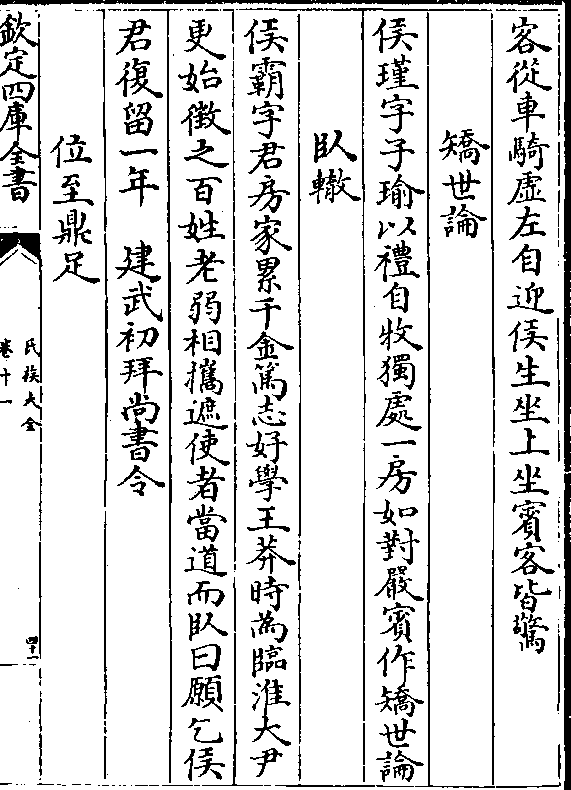 客從車騎虛左自迎侯生坐上坐賓客皆驚
矯世論
侯瑾字子瑜以禮自牧獨處一房如對嚴賓作矯世論
臥轍
侯霸字君房家累千金篤志好學王莽時為臨淮大尹
更始徵之百姓老弱相攜遮使者當道而臥曰願乞侯
君復留一年　建武初拜尚書令
位至鼎足
欽定四庫全書
氏族大全
卷十一
四十一